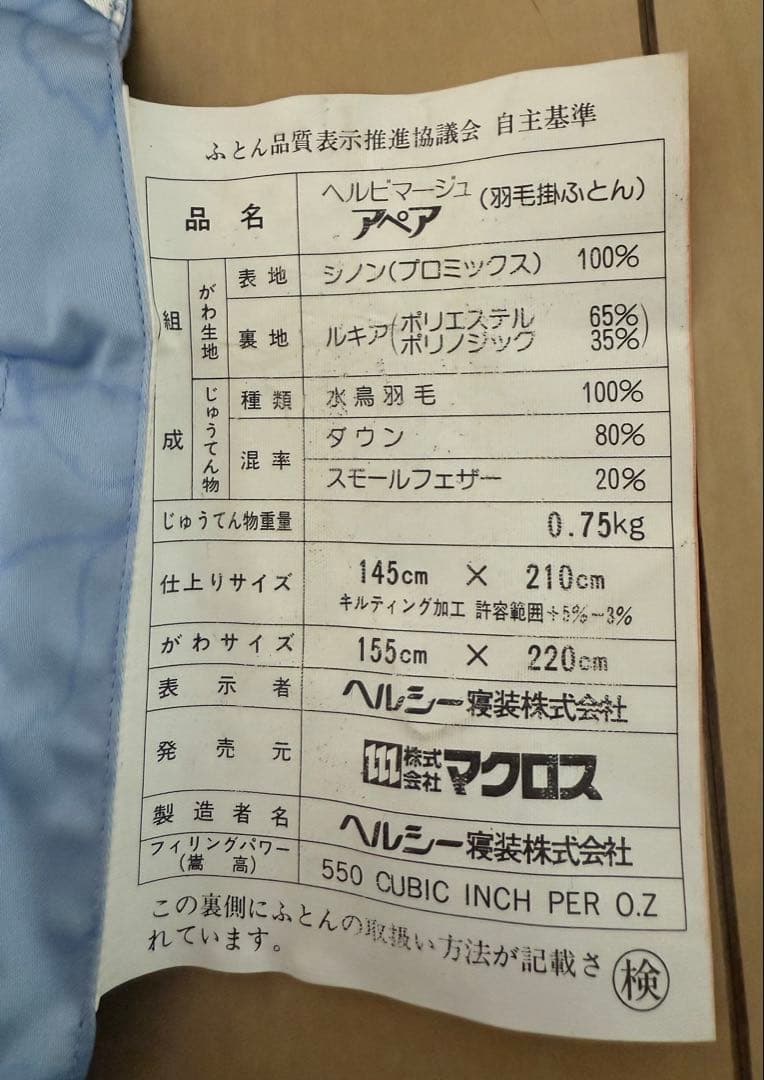 ふとん品質表示推進協議会 自主基準
品名 ヘルビマージュ (羽毛掛ふとん)
アペア
組成 がわ生地 表地 シノン(プロミックス) 100%
裏地 ルキア(ポリエステル 65%
ポリノジック 35%)
じゅうてん物 種類 水鳥羽毛 100%
混率 ダウン 80%
スモールフェザー 20%
じゅうてん物重量 0.75kg
仕上りサイズ 145cm × 210cm
キルティング加工 許容範囲+5%−3%
がわサイズ 155cm × 220cm
表示者 ヘルシー寝装株式会社
発売元 株式会社マクロス
製造者名 ヘルシー寝装株式会社
フィリングパワー
(嵩高) 550 CUBIC INCH PER O.Z
この裏側にふとんの取扱い方法が記載さ
れています。
検